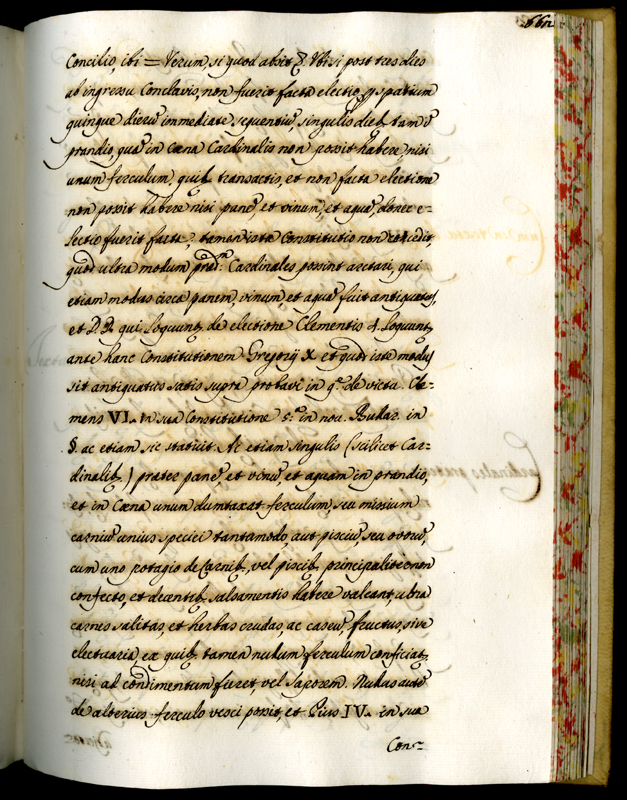 662
Concilio, ibi = Verum, si quod absit §. Ubi si post tres dies
ab ingressu Conclavis, non fuerit facta electio, ꝑ spatium
quinque dierũ immediate sequentiũ, singulis dieb. tam ĩ
prandio, quã in Cæna Cardinalis non possit habere, nisi
unum ferculum, quib. transactis, et non facta electione
non possit habere nisi panẽ, et vinum, et aquã, donec e-
lectio fuerit facta, tamen ista Constitutio non concedit
quod ultra modum præd.ⁱ Cardinales possint arctari, qui
etiam modus circa panem, vinum, et aquã fuit antiquatus,
et DD. qui loquunt. de electione Clementis 4. loquunt.
ante hanc Constitutionem Gregorij X et quod iste modus
sit antiquatus satis supra probavi in q. de victu. Cle-
mens VI. in sua Constitutione 5.ᵃ in nou. Bullar. in
§. ac etiam sic statuit. Ac etiam singulis (scilicet Car-
dinalib.) præter panẽ, et vinũ, et aquam in prandio,
et in Cæna unum dumtaxat ferculum, seu missium
carniũ unius speciei tantamodo, aut pisciũ, seu ovorũ,
cum uno potagio de Carnib. vel piscib. principaliter non
confecto, et decentib. salsamentis habere valeant, ultra
carnes salitas, et herbas crudas, ac caseũ, fructus, sive
electuaria, ex quib. tamen nullum ferculum conficiat.
nisi ad condimentum fieret, vel saporem. Nullus autẽ
de alterius ferculo vesci possit, et Pius IV. in sua
Con-